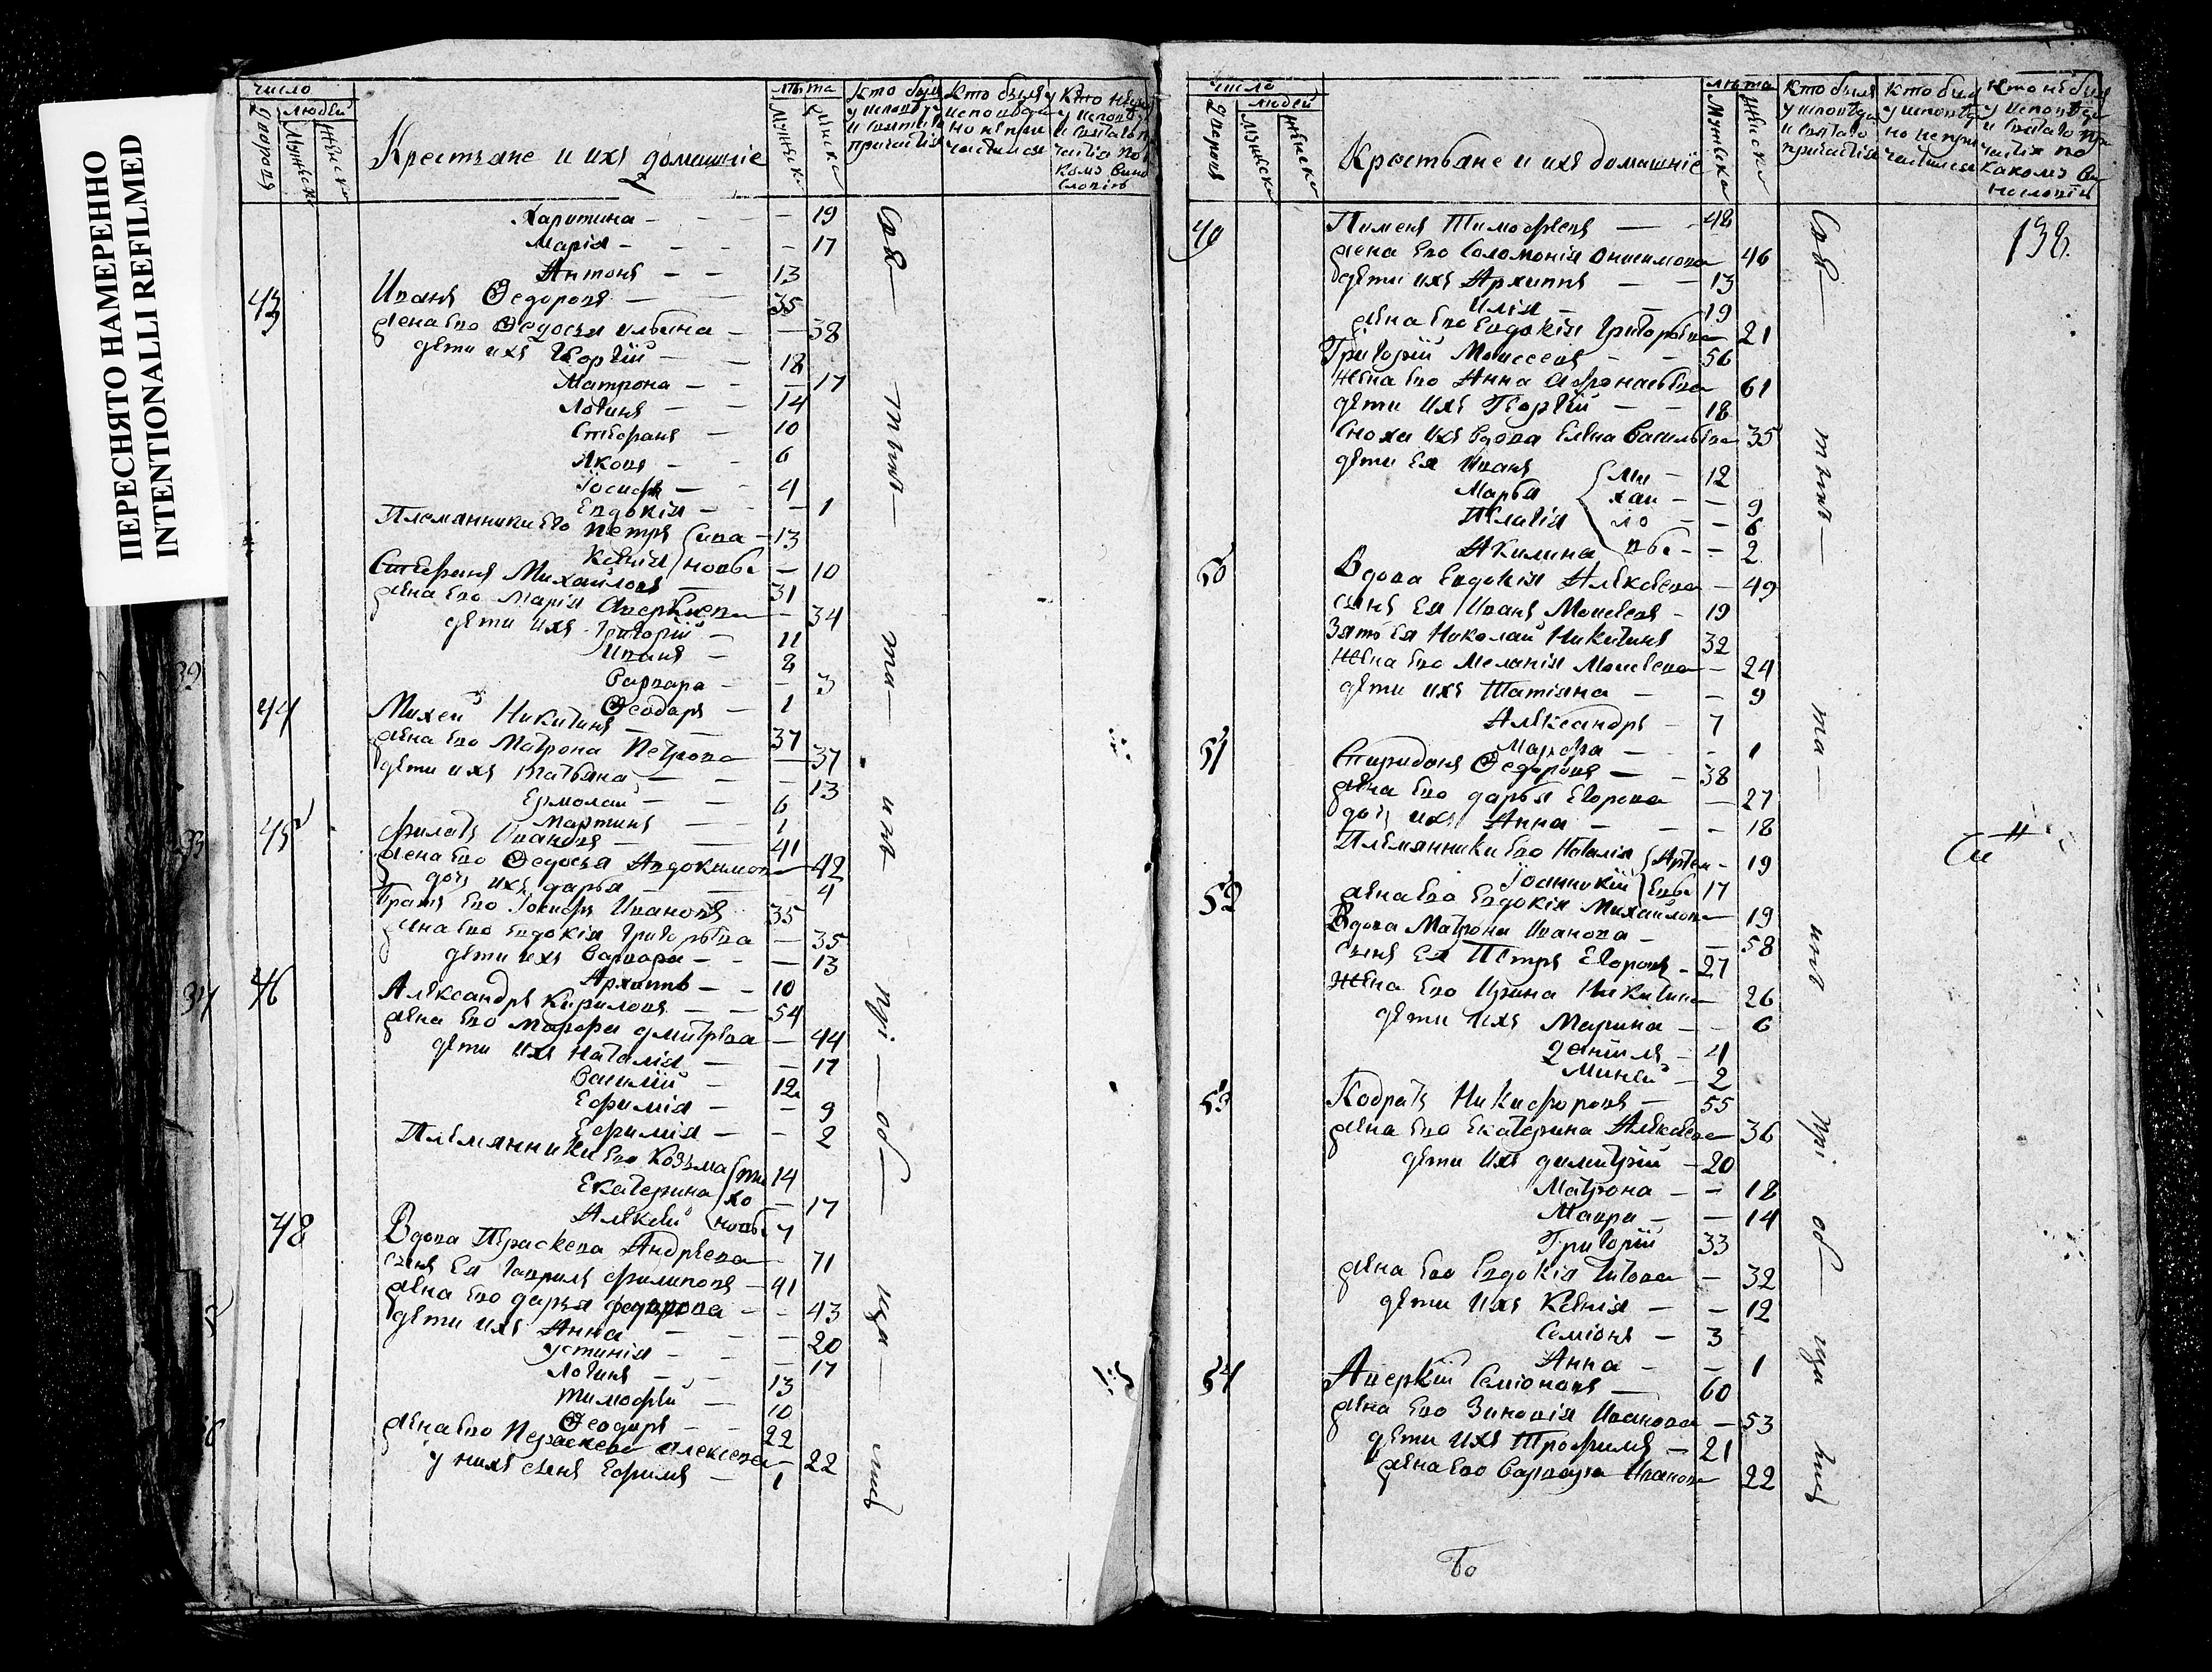 ПЕРЕСНЯТО НАМЕРЕННО
INTENTIONALLI REFILMED
число
людей
Дворовъ
Мужеска
Женска
Крестьяне и ихъ домашнїе
лѣта
Мужеска
Женска
Кто былъ у исповѣди и святаго причастїя
Кто былъ у исповѣди но не причастился
Харитина - - - - 19
Марїя - - - - 17
Антонъ - - 13
43 Иванъ Ѳедоровъ - - 35
жена Его Ѳедосья ильина - - 38
дѣти ихъ Георгїй - - 18
Матрона - - - 17
Логинъ - - 14
Стефанъ - 10
Яковъ - - 6
Їосифъ - - 4
Евдокїя - - - 1
Племянники Его Петръ - 13
Ксенїя - 10
ива
новы
Стефанъ Михайловъ - 31
жена Его Марїя Аверкиева - 34
дѣти ихъ Григорїй - 11
Иванъ - 8
Варвара - - 3
Ѳеодоръ - 1
44 Михей Никитинъ - - 37
жена Его Матрона Петрова - 37
дѣти ихъ татьяна - - - 13
Ермолай - - 6
Мартинъ - - 1
45 Филатъ Ивановъ - - 41
жена Его Ѳедосья Авдокимова - 42
дочь ихъ дарья - - 4
Братъ Его Їосифъ Ивановъ 35
жена Его Евдокїя Григорьева - 35
дѣти ихъ Варвара - - - 13
Архиппъ - - 10
46 Александръ Кириловъ - - 54
жена Его Марфа дмитрева - 44
дѣти ихъ Наталїя - - 17
Василїй - 12
Ефимїя - - 9
Ефимїя - - 2
Племянники Его Козьма 14
Екатерина - 17
Алексей 7
ти
хо
новы
48 Вдова Параскева Андрѣева - 71
сынъ Ея Гаврилъ Филиповъ - 41
жена Его дарья федорова - - 43
дѣти ихъ Анна - - - 20
устинїя - - - 17
Логинъ - - 13
тимофѣй - 10
Ѳеодоръ - - 22
жена Его Параскева алексѣева - 22
у нихъ сынъ Ефимъ - 1
число
людей
Дворовъ
Мужеска
Женска
Крестьяне и ихъ домашнїе
лѣта
Мужеска
Женска
Кто былъ у исповѣди и святаго причастїя
Кто былъ у исповѣди но не причастился
138
49 Пименъ Тимофѣевъ - - 48
жена Его Соломонїя Онисимова 46
дѣти ихъ Архиппъ - - 13
Илїя - - 19
жена Его Евдокїя Григорьева 21
Григорїй Моисеевъ - - 56
Жена Его Анна Афонасьева 61
дѣти ихъ Георгїй - - 18
Сноха ихъ вдова Елена Васильева 35
дѣти Ея Иванъ - 12
Марья - - 9
Пелагїя - - 6
Акилина - - 2
ми
хаи
ло
вы
50 Вдова Евдокїя Алексеева - 49
сынъ Ея Иванъ Моисеевъ - 19
Зять Ея Николай Никитинъ 32
Жена Его Меланїя Моисеева - 24
дѣти ихъ Татїяна - - 9
Александръ - 7
Марфа - - 1
51 Спиридонъ Ѳедоровъ - - 38
жена Его дарья Егорова - 27
дочь ихъ Анна - - - 18
Племянники Его Наталїя - 19
Їоанникїй 17
Артем
Евы
52 жена Его Евдокїя Михайлова - 19
Вдова Матрона Иванова - - 58
сынъ Ея Петръ Егоровъ - 27
Жена Его Ирина Никитина 26
дѣти ихъ Марина - - 6
данїилъ - 4
Миней - 2
53 Кодратъ Никифоровъ - 55
жена Его Екатерина Алексеева 36
дѣти ихъ димитрїй - 20
Матрона - - 18
Мавра - - 14
Григорїй 33
жена Его Евдокїя титова - 32
дѣти ихъ Ксенїя - - 12
Семїонъ - 3
Анна - - 1
54 Аверкїй Семїоновъ - 60
жена Его Зиновїя Иванова - 53
дѣти ихъ Трофимъ - 21
жена Его Варвара Иванова 22